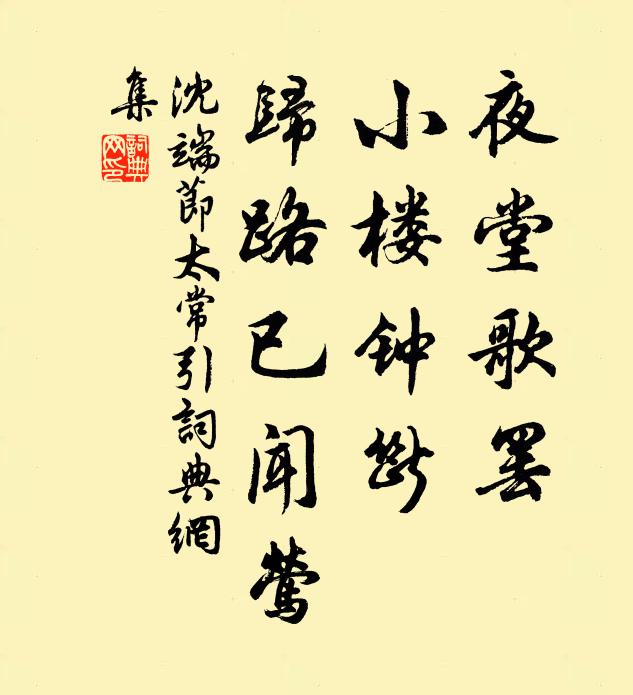 夜堂歌罢
小楼钟断
歸路已闻莺
沈端節太常引詞典網
集
詞典网印